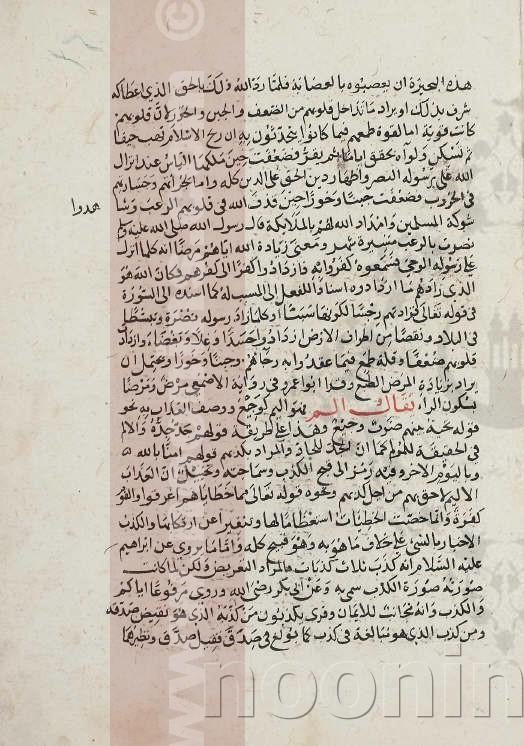 هذه البحيرة ان يعصبوه بالعصابة فلما رد الله ذلك بالحق الذي اعطاكه
شرق بذلك او يراد ما تداخل قلوبهم من الضعف والجبن والخور لان قلوبهم
كانت قوية اما لقوة طمعهم فيما كانوا يتحدثون به ان ريح الاسلام تهب حينا
ثم تسكن ولواءه يخفق اياما ثم يقر فضعفت حين ملكها الياس عند انزال
الله على رسوله النصر واظهار دين الحق على الدين كله واما لجراتهم وجسارتهم
في الحروب فضعفت جبنا وخورا حين قذف الله في قلوبهم الرعب وشاهدوا
شوكة المسلمين وامداد الله لهم بالملايكة قال رسول الله صلى الله عليه وسلم
نصرت بالرعب مسيرة شهر ومعنى زيادة الله اياهم مرضا انه كلما انزل
على رسوله الوحي فسمعوه كفروا به فازدادوا كفرا الى كفرهم فكان الله هو
الذي زادهم ما ازدادوه اسنادا للفعل الى المسبب له كما اسنده الى السورة
في قوله تعالى فزادتهم رجسا لكونها سببا او كلما زاد رسوله نصرة وتبسطا
في البلاد ونقصا من اطراف الارض ازدادوا حسدا وغلا وبغضا وازداد
قلوبهم ضعفا وقلة طمع فيما عقدوا به رجاهم وجبنا وخورا ويحتمل ان
يراد بزيادة المرض الطبع وقرا ابو عمرو في رواية الاصمعي مرض ومرضا
بسكون الراء يقال الم فهو اليم كوجع ووصف العذاب به نحو
قوله تحية بينهم ضرب وجيع وهذا على طريقة قولهم جد جده والالم
في الحقيقة للمولم كما ان الجد للجاد والمراد بكذبهم قولهم امنا بالله
وباليوم الاخر وفيه رمز الى قبح الكذب وسماجته وتخييل ان العذاب
الاليم لاحق بهم من اجل كذبهم ونحوه قوله تعالى مما خطاياهم اغرقوا والقوم
كفرة وانما خصت الخطيات استعظاما لها وتنفيرا عن ارتكابها والكذب
الاخبار بالشي على خلاف ما هو به وهو قبيح كله واما ما يروى عن ابراهيم
عليه السلام انه كذب ثلاث كذبات فالمراد التعريض ولكن لما كانت
صورته صورة الكذب سمي به وعن ابي بكر رضي الله وروي مرفوعا اياكم
والكذب فانه مجانب للايمان وقرى يكذبون من كذبه الذي هو نقيض صدقه
ومن كذب الذي هو مبالغة في كذب كما بولغ في صدق فقيل صدق ونظيرهما
noonin